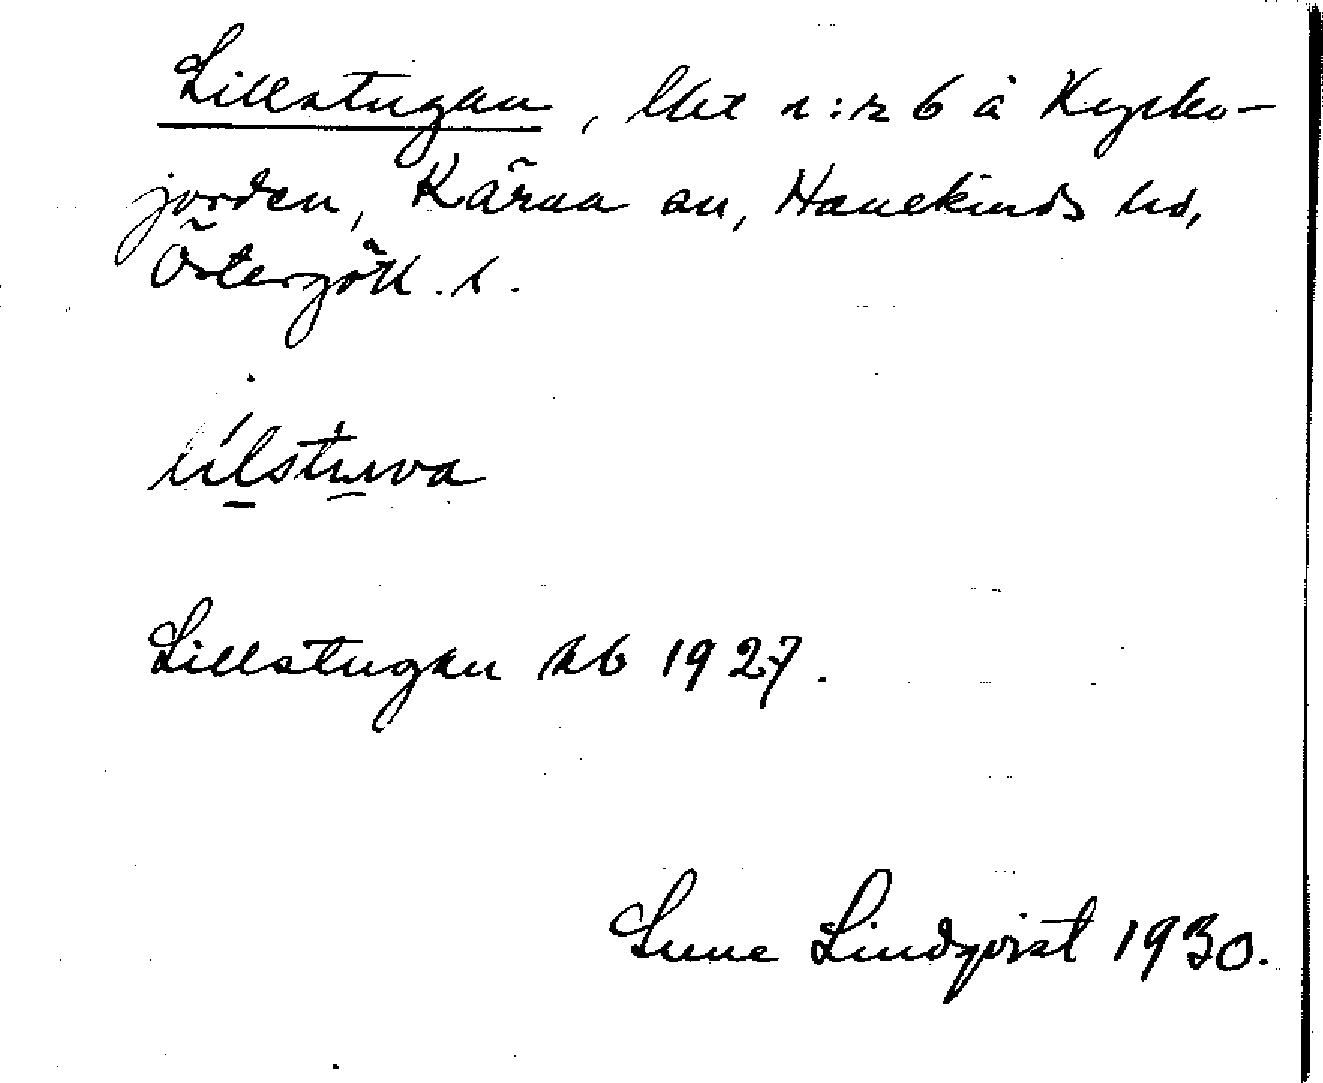 Lillstugan, lht n:r 6 å Kyrko-
jorden, Kärna sn, Hanekinds hd,
Östergötl. l.
lilstuva
Lillstugan hb 1927.
Sune Lindqvist 1930.